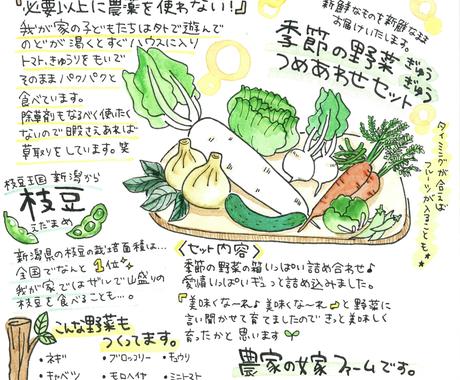 『必要以上に農薬を使わない!』
我が家の子どもたちは外で遊んで
のどが渇くとすぐハウスに入り
トマト、きゅうりをもいで
そのままパクパクと
食べています。
除草剤もなるべく使いたく
ないので暇さえあれば
草取りをしています。笑
新鮮なものを新鮮なまま
お届けいたします。
季節の野菜
ぎゅうぎゅう
つめあわせセット
タイミングが合えば
フルーツが入ることも★
枝豆王国 新潟から
枝豆
えだまめ
新潟県の枝豆の栽培面積は…
全国でなんと1位
我が家ではザルで山盛りの
枝豆を食べることも…。
<セット内容>
季節の野菜の箱いっぱい詰め合わせ♪
愛情いっぱいぎゅっと詰め込みました。
『美味くな〜れ♪美味くな〜れ♪と野菜に
言い聞かせて育てましたのできっと美味しく
育ったかと思います
こんな野菜も
つくってます。
・ネギ ・ブロッコリー ・キュウリ
・キャベツ ・モロヘイヤ ・ミニトマト
農家の嫁ファームです。